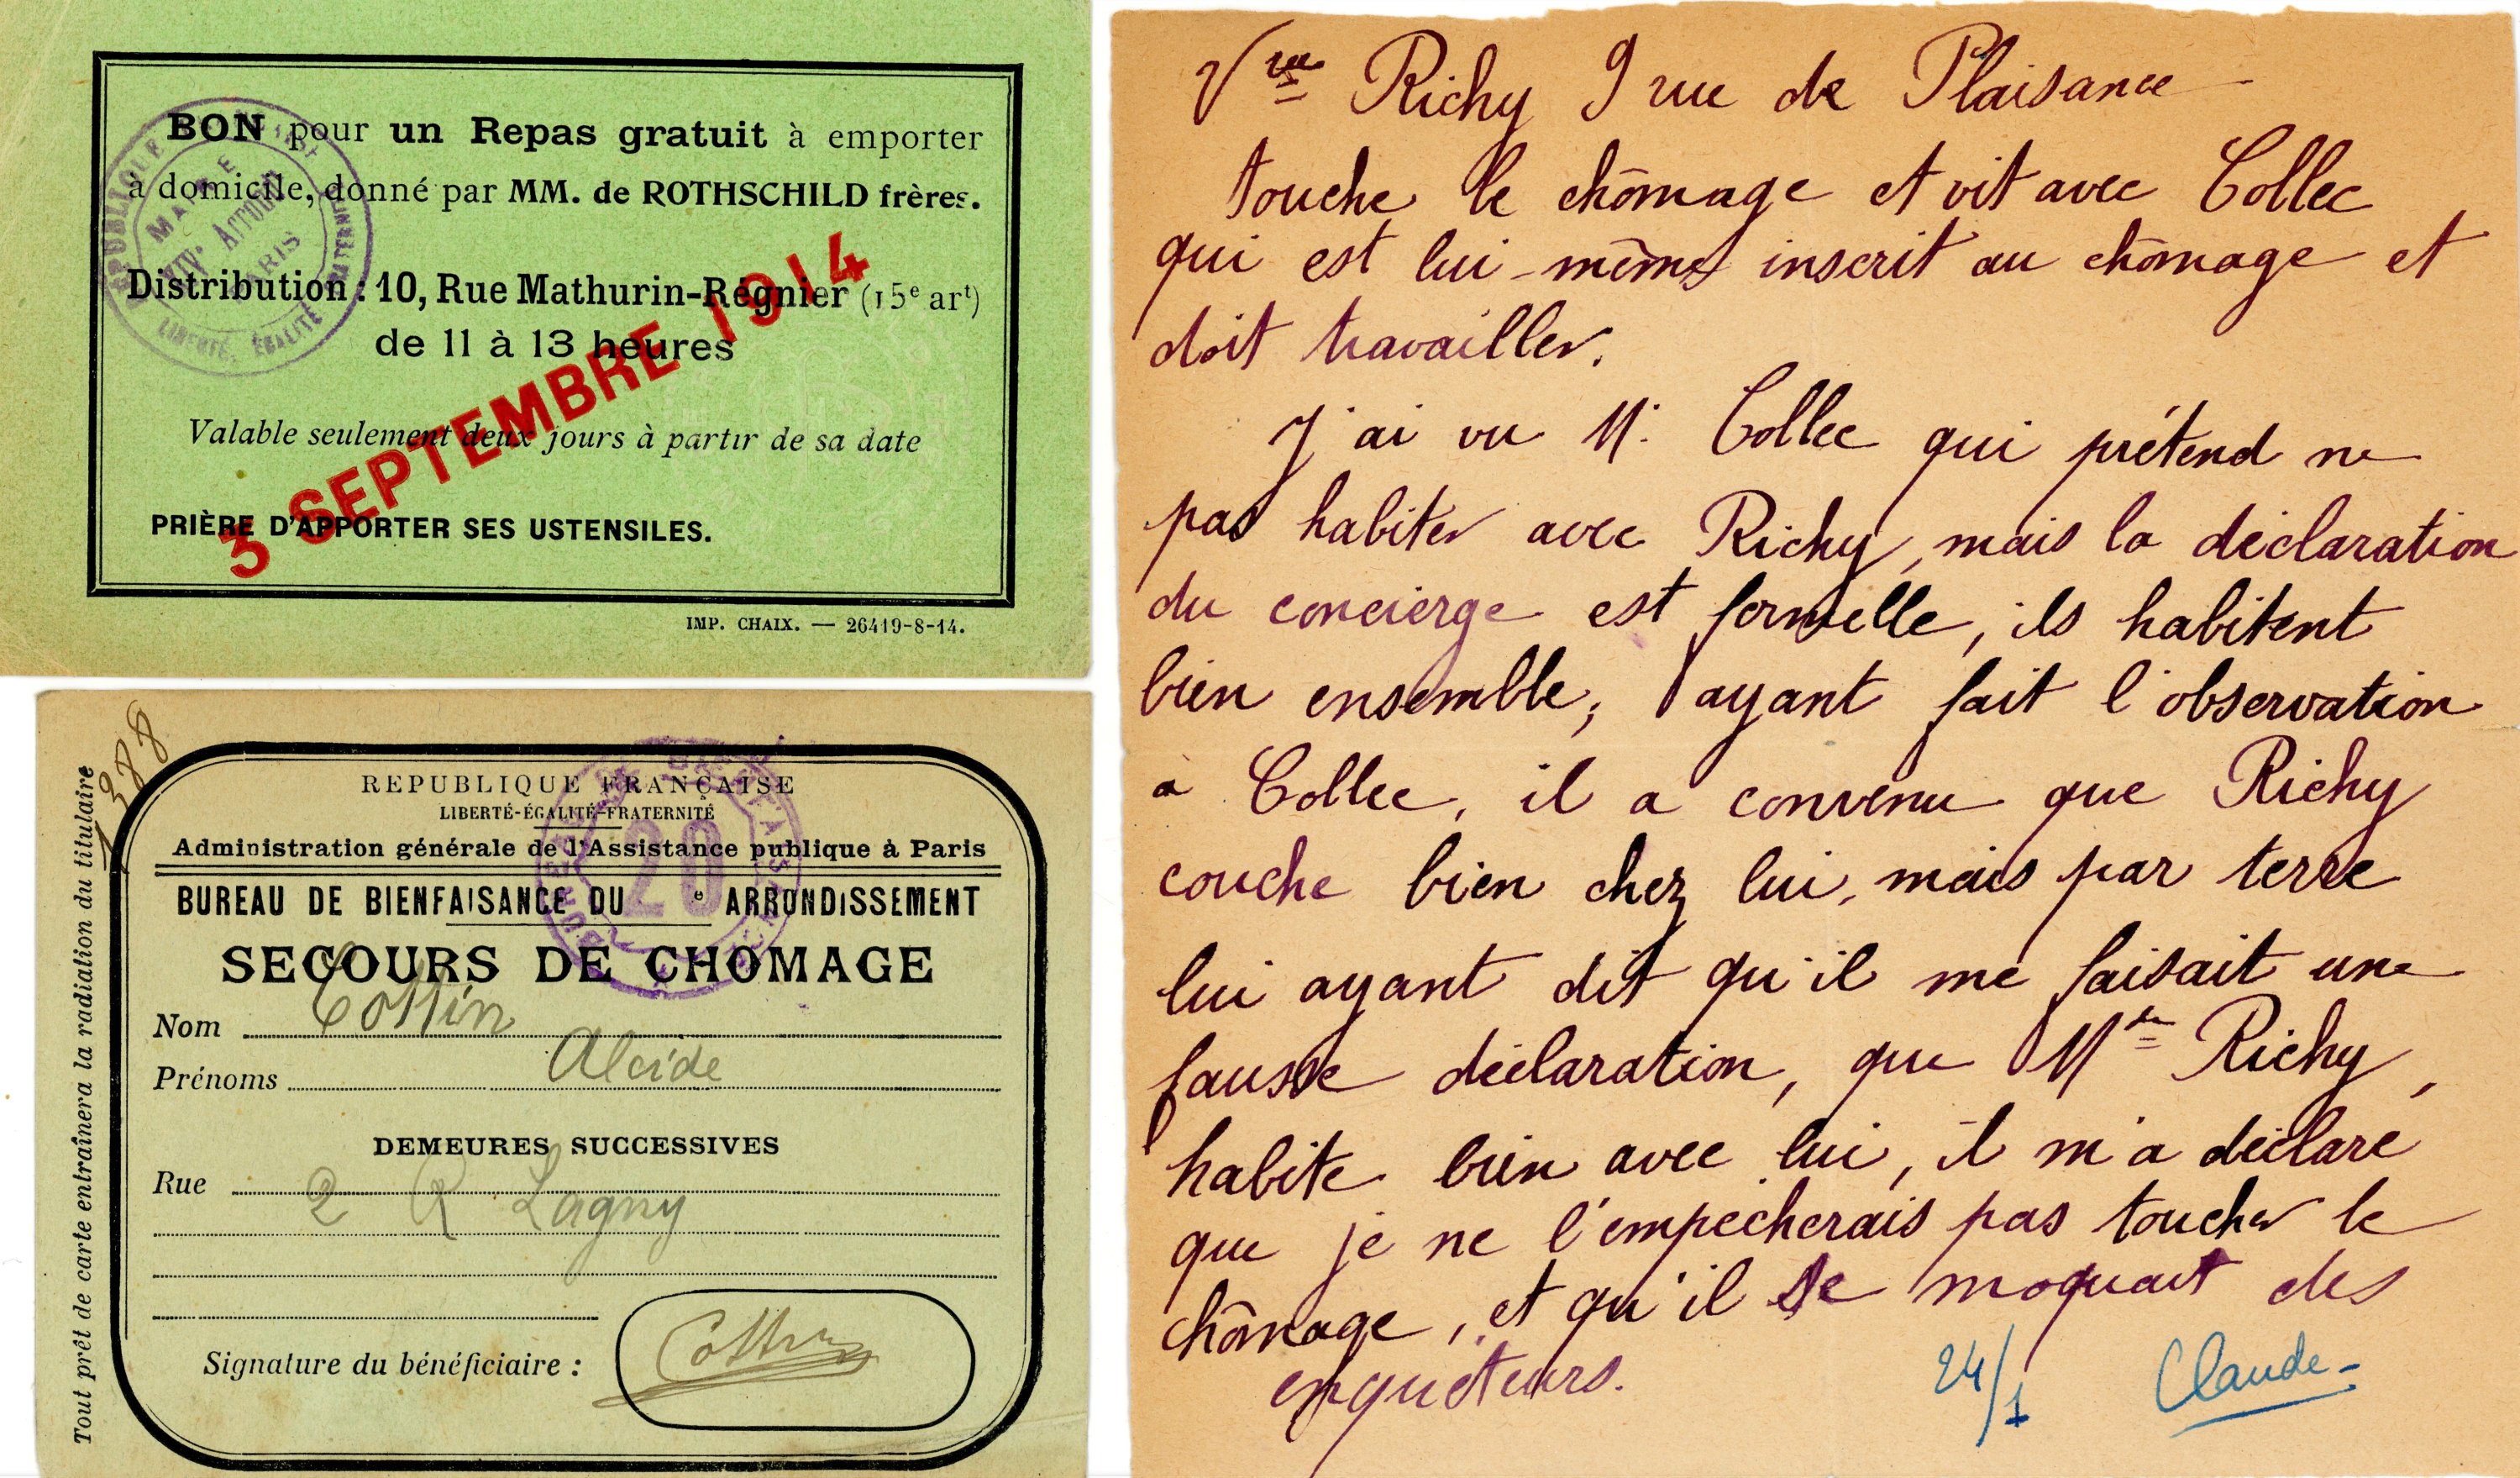 BON pour un Repas gratuit à emporter
à domicile, donné par MM. de ROTHSCHILD frères.
Distribution : 10, Rue Mathurin-Régnier (15e art)
de 11 à 13 heures
Valable seulement deux jours à partir de sa date
PRIÈRE D'APPORTER SES USTENSILES.
3 SEPTEMBRE 1914
MAIRIE
XIVe ARRONDt
PARIS
RÉPUBLIQUE
LIBERTÉ, ÉGALITÉ, FRATERNITÉ
IMP. CHAIX. — 26419-8-14.
1388
Tout prêt de carte entraînera la radiation du titulaire
REPUBLIQUE FRANÇAISE
LIBERTÉ-ÉGALITÉ-FRATERNITÉ
Administration générale de l'Assistance publique à Paris
BUREAU DE BIENFAISANCE DU 20 e ARRONDISSEMENT
SECOURS DE CHOMAGE
Nom Cottin
Prénoms Alcide
DEMEURES SUCCESSIVES
Rue 2 R Lagny
Signature du bénéficiaire :
Cottin
Vve Richy 9 rue de Plaisance
touche le chômage et vit avec Collec
qui est lui-même inscrit au chômage et
doit travailler.
J'ai vu M. Collec qui prétend ne
pas habiter avec Richy, mais la déclaration
du concierge est formelle, ils habitent
bien ensemble; ayant fait l'observation
à Collec, il a convenu que Richy
couche bien chez lui, mais par terre
lui ayant dit qu'il me faisait une
fausse déclaration, que Mde Richy,
habite bien avec lui, il m'a déclaré
que je ne l'empècherais pas toucher le
chômage, et qu'il se moquait des
enquêteurs.
24/1 Claude